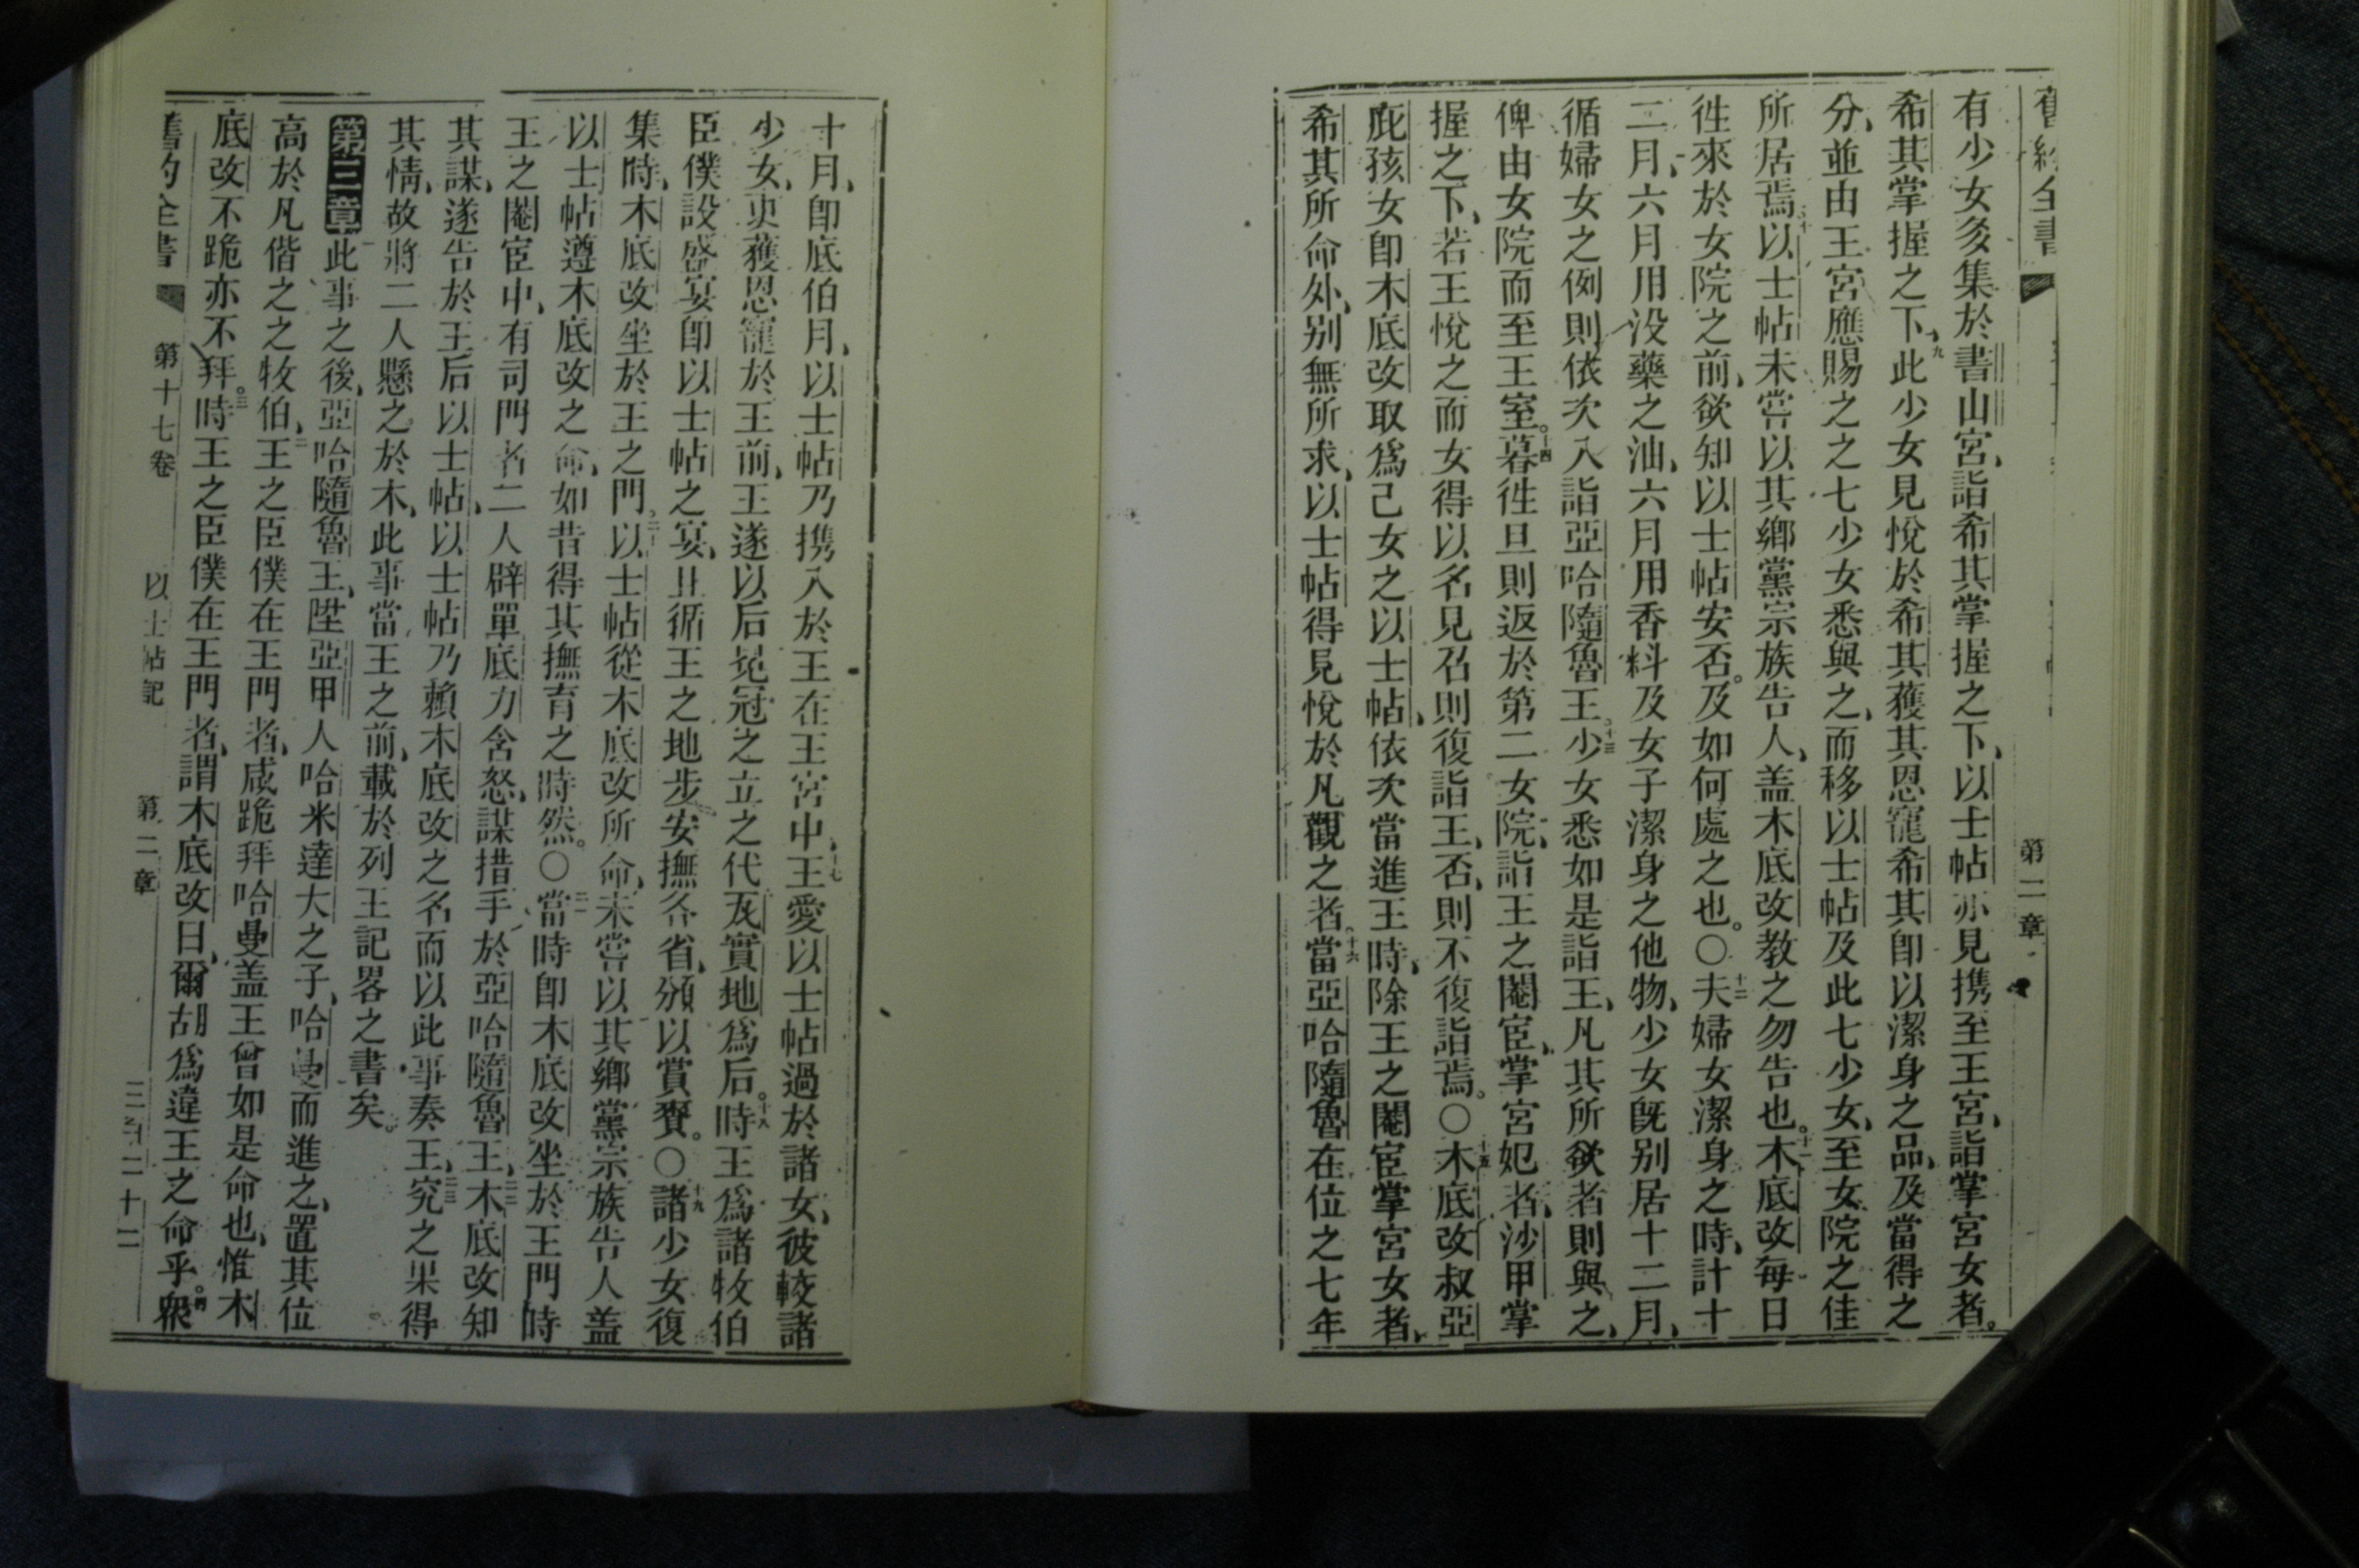 第二章
有少女多集於書山宮、詣希其掌握之下、以士帖亦見携至王宮、詣掌宮女者。
希其掌握之下、九此少女見悅於希其獲其恩寵希其卽以潔身之品、及當得之
分、並由王宮應賜之之七少女悉與之、而移以士帖及此七少女、至女院之佳
所居焉。十以士帖未嘗以其鄉黨宗族告人、盖木底改教之勿告也。十一木底改每日
徃來於女院之前、欲知以士帖安否。及如何處之也。〇十二夫婦女潔身之時、計十
二月、六月用没藥之油、六月用香料及女子潔身之他物、少女旣别居十二月、
循婦女之例則依次入詣亞哈隨魯王。十三少女悉如是詣王、凡其所欲者則與之、
俾由女院而至王室。十四暮徃旦則返於第二女院、詣王之閹宦、掌宮妃者、沙甲掌
握之下、若王悅之而女得以名見召則復詣王、否、則不復詣焉。〇十五木底改叔亞
庇孩女卽木底改取爲己女之以士帖、依次當進王時、除王之閹宦掌宮女者、
希其所命外、别無所求、以士帖得見悅於凡觀之者。十六當亞哈隨魯在位之七年
十月、卽底伯月、以士帖乃携入於王在王宮中、十七王愛以士帖過於諸女、彼較諸
少女、更獲恩寵於王前、王遂以后冕冠之立之代瓦實地爲后。十八時王爲諸牧伯
臣僕設盛宴卽以士帖之宴、且循王之地步安撫各省、頒以賞賚。〇十九諸少女復
集時、木底改坐於王之門。二十以士帖從木底改所命、未嘗以其鄉黨宗族告人盖
以士帖遵木底改之命、如昔得其撫育之時然。〇二一當時卽木底改坐於王門時
王之閹宦中、有司門者二人辟單底力含怒、謀措手於亞哈隨魯王、二二木底改知
其謀、遂告於王后以士帖、以士帖乃賴木底改之名而以此事奏王、二三究之果得
其情、故將二人懸之於木、此事當王之前、載於列王記畧之書矣。
第三章此事之後、亞哈隨魯王、陞亞甲人哈米達大之子、哈曼而進之、置其位
高於凡偕之之牧伯、二王之臣僕在王門者、咸跪拜哈曼盖王曾如是命也、惟木
底改不跪亦不拜。三時王之臣僕在王門者、謂木底改曰、爾胡爲違王之命乎。四衆
第十七卷 以士帖記 第二章